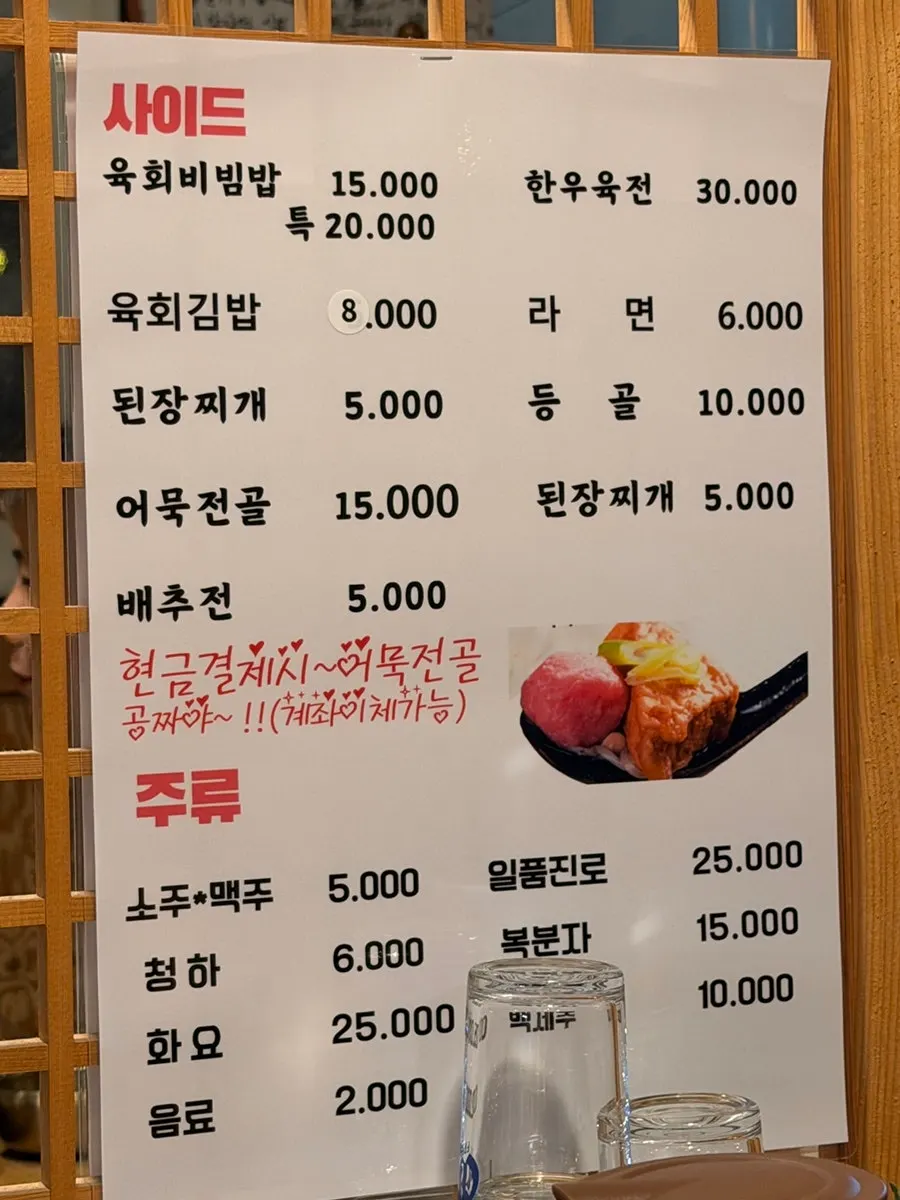 사이드
육회비빔밥 15.000 한우육전 30.000
특 20.000
육회김밥 8.000 라 면 6.000
된장찌개 5.000 등 골 10.000
어묵전골 15.000 된장찌개 5.000
배추전 5.000
현금결제시~어묵전골
공짜야~ !!(계좌이체가능)
주류
소주*맥주 5.000 일품진로 25.000
청하 6.000 복분자 15.000
화요 25.000 백세주 10.000
음료 2.000